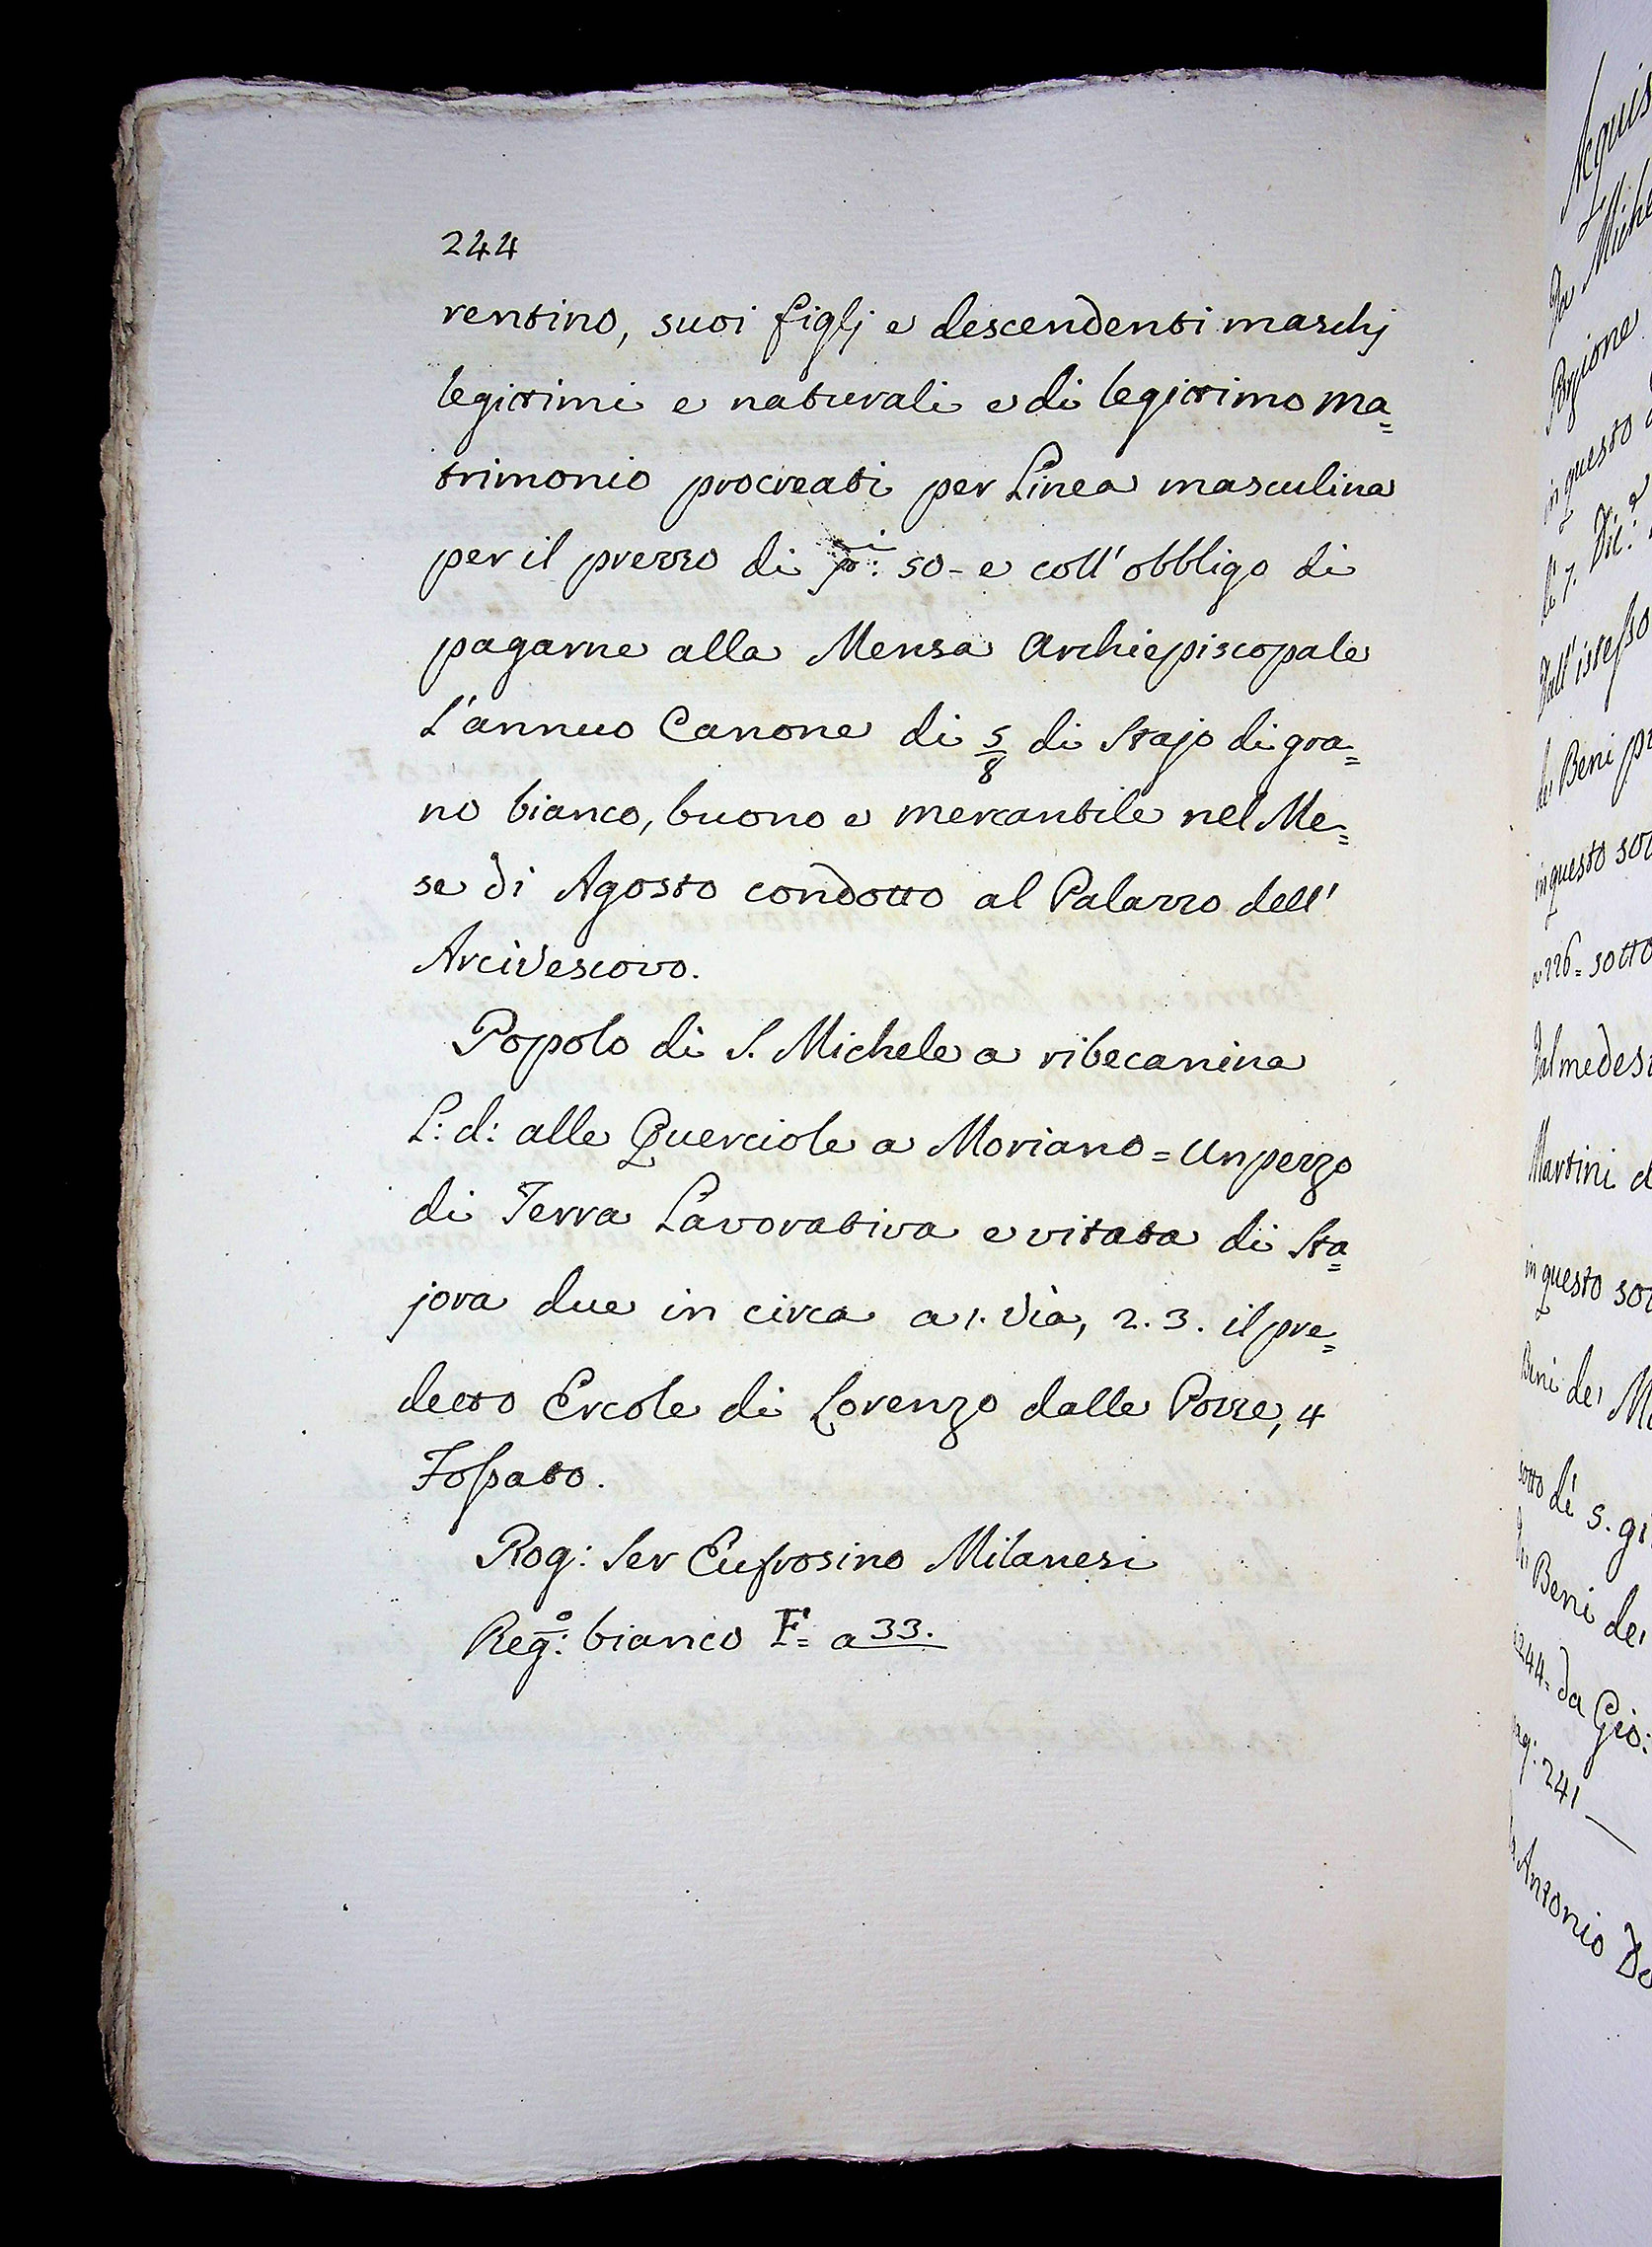 244
rentino, suoi figlj e descendenti maschj
legittimi e naturali e di legittimo ma=
trimonio procreati per Linea masculina
per il prezzo di 50 - e coll' obbligo di
pagarne alla Mensa Archiepiscopale
L'annuo Canone di 5/8 di Stajo di gra=
no bianco, buono e mercantile nel Me=
se di Agosto condotto al Palazzo dell'
Arcivescovo.
Popolo di S. Michele a ribecanina
L: d: alle Querciole a Moriano = Un pezzo
di Terra Lavorativa e vitata di Sta=
jora due in circa a 1. Via, 2. 3. il pre=
detto Ercole di Lorenzo dalle Pozze, 4
Foſsato.
Rog: Ser Eufrosino Milanesi
Reg:º bianco F= a 33.
Acquis
Da Miche
Porzione
in questo
li 7. Dic:
Dall' isteſso
de Beni
in questo
a 226 = sotto
Dal medes
Martini d
in questo
Beni de'
sotto dì 5.
Beni de'
244 = da Gio:
pag: 241
Antonio